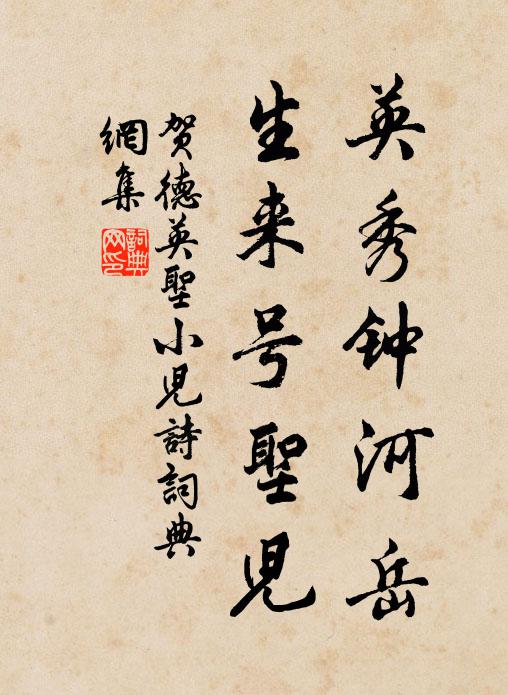 英秀钟河岳
生来号聖児
贺德英聖小児詩詞典
網集
詞典網印